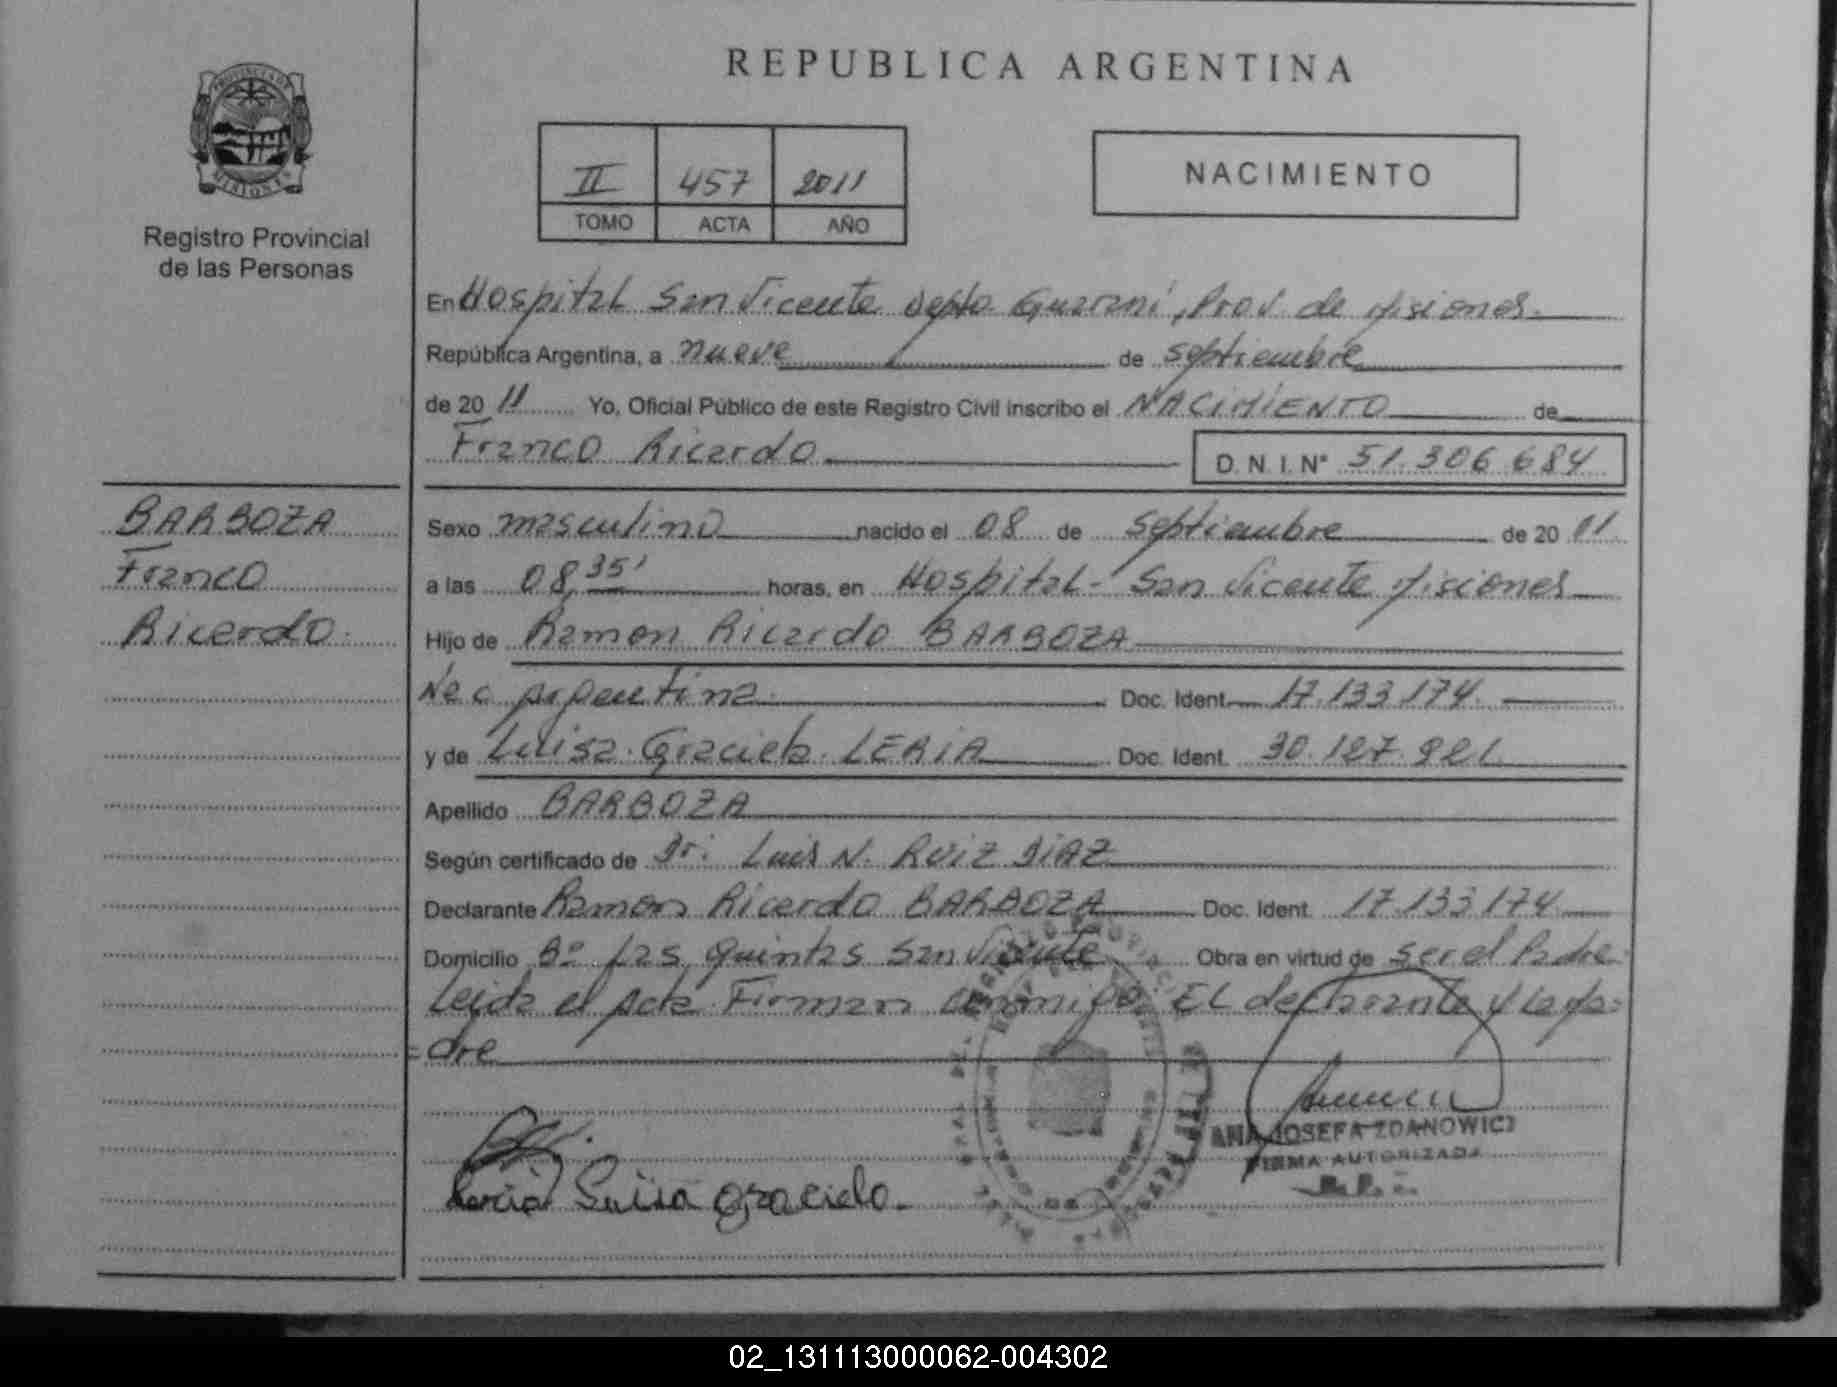 REPUBLICA ARGENTINA
PROVINCIA DE
MISIONES
Registro Provincial
de las Personas
II 457 2011
TOMO ACTA AÑO
NACIMIENTO
En Hospital San Vicente Depto Guarani, Prov. de Misiones.
República Argentina, a nueve de septiembre
de 20 11 Yo, Oficial Público de este Registro Civil inscribo el NACIMIENTO de
Franco Ricardo D.N.I.Nº 51.306.684
BARBOZA
Franco
Ricardo.
Sexo masculino nacido el 08 de septiembre de 20 11.
a las 08,35' horas, en Hospital- San Vicente Misiones
Hijo de Ramon Ricardo BARBOZA
Nac argentina. Doc. Ident. 17.133.174.
y de Luisa Graciela LERIA Doc. Ident. 30.127.921
Apellido BARBOZA
Según certificado de Dr. Luis N. RUIZ DIAZ
Declarante Ramon Ricardo BARBOZA Doc. Ident. 17.133.174
Domicilio Bº Las Quintas San Vicente Obra en virtud de ser el Padre
Leida el acta Firman conmigo EL declarante y la ma=
=dre
Leria Luisa Graciela.
ANA JOSEFA ZDANOWICZ
FIRMA AUTORIZADA
02_131113000062-004302